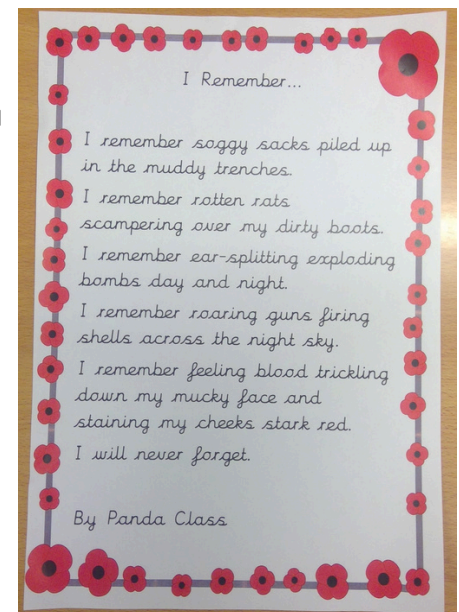 I Remember...
I remember soggy sacks piled up
in the muddy trenches.
I remember rotten rats
scampering over my dirty boots.
I remember ear-splitting exploding
bombs day and night.
I remember roaring guns firing
shells across the night sky.
I remember feeling blood trickling
down my mucky face and
staining my cheeks stark red.
I will never forget.
By Panda Class